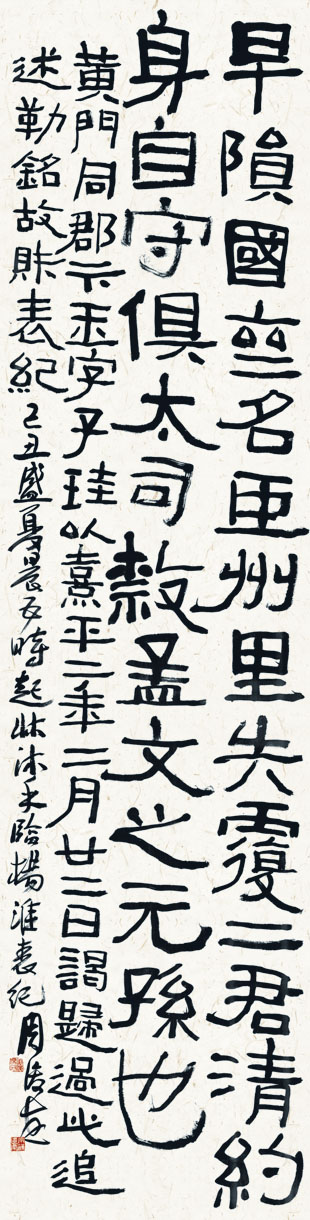 早隕國喪名臣州里失覆二君清約
身自守俱太司隸孟文之元孫也
黃門同郡卞玉字子珪以熹平二年二月廿二日謁歸過此追
述勒銘故財表紀 己丑盛夏晨五時起牀沐手臨楊淮表紀 周俊杰